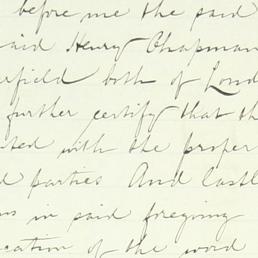 before me the said
said Henry Chapman
erfield both of Lond
further certify that th
ted with the proper
d parties And lastly
in said foregoing
cation of the word